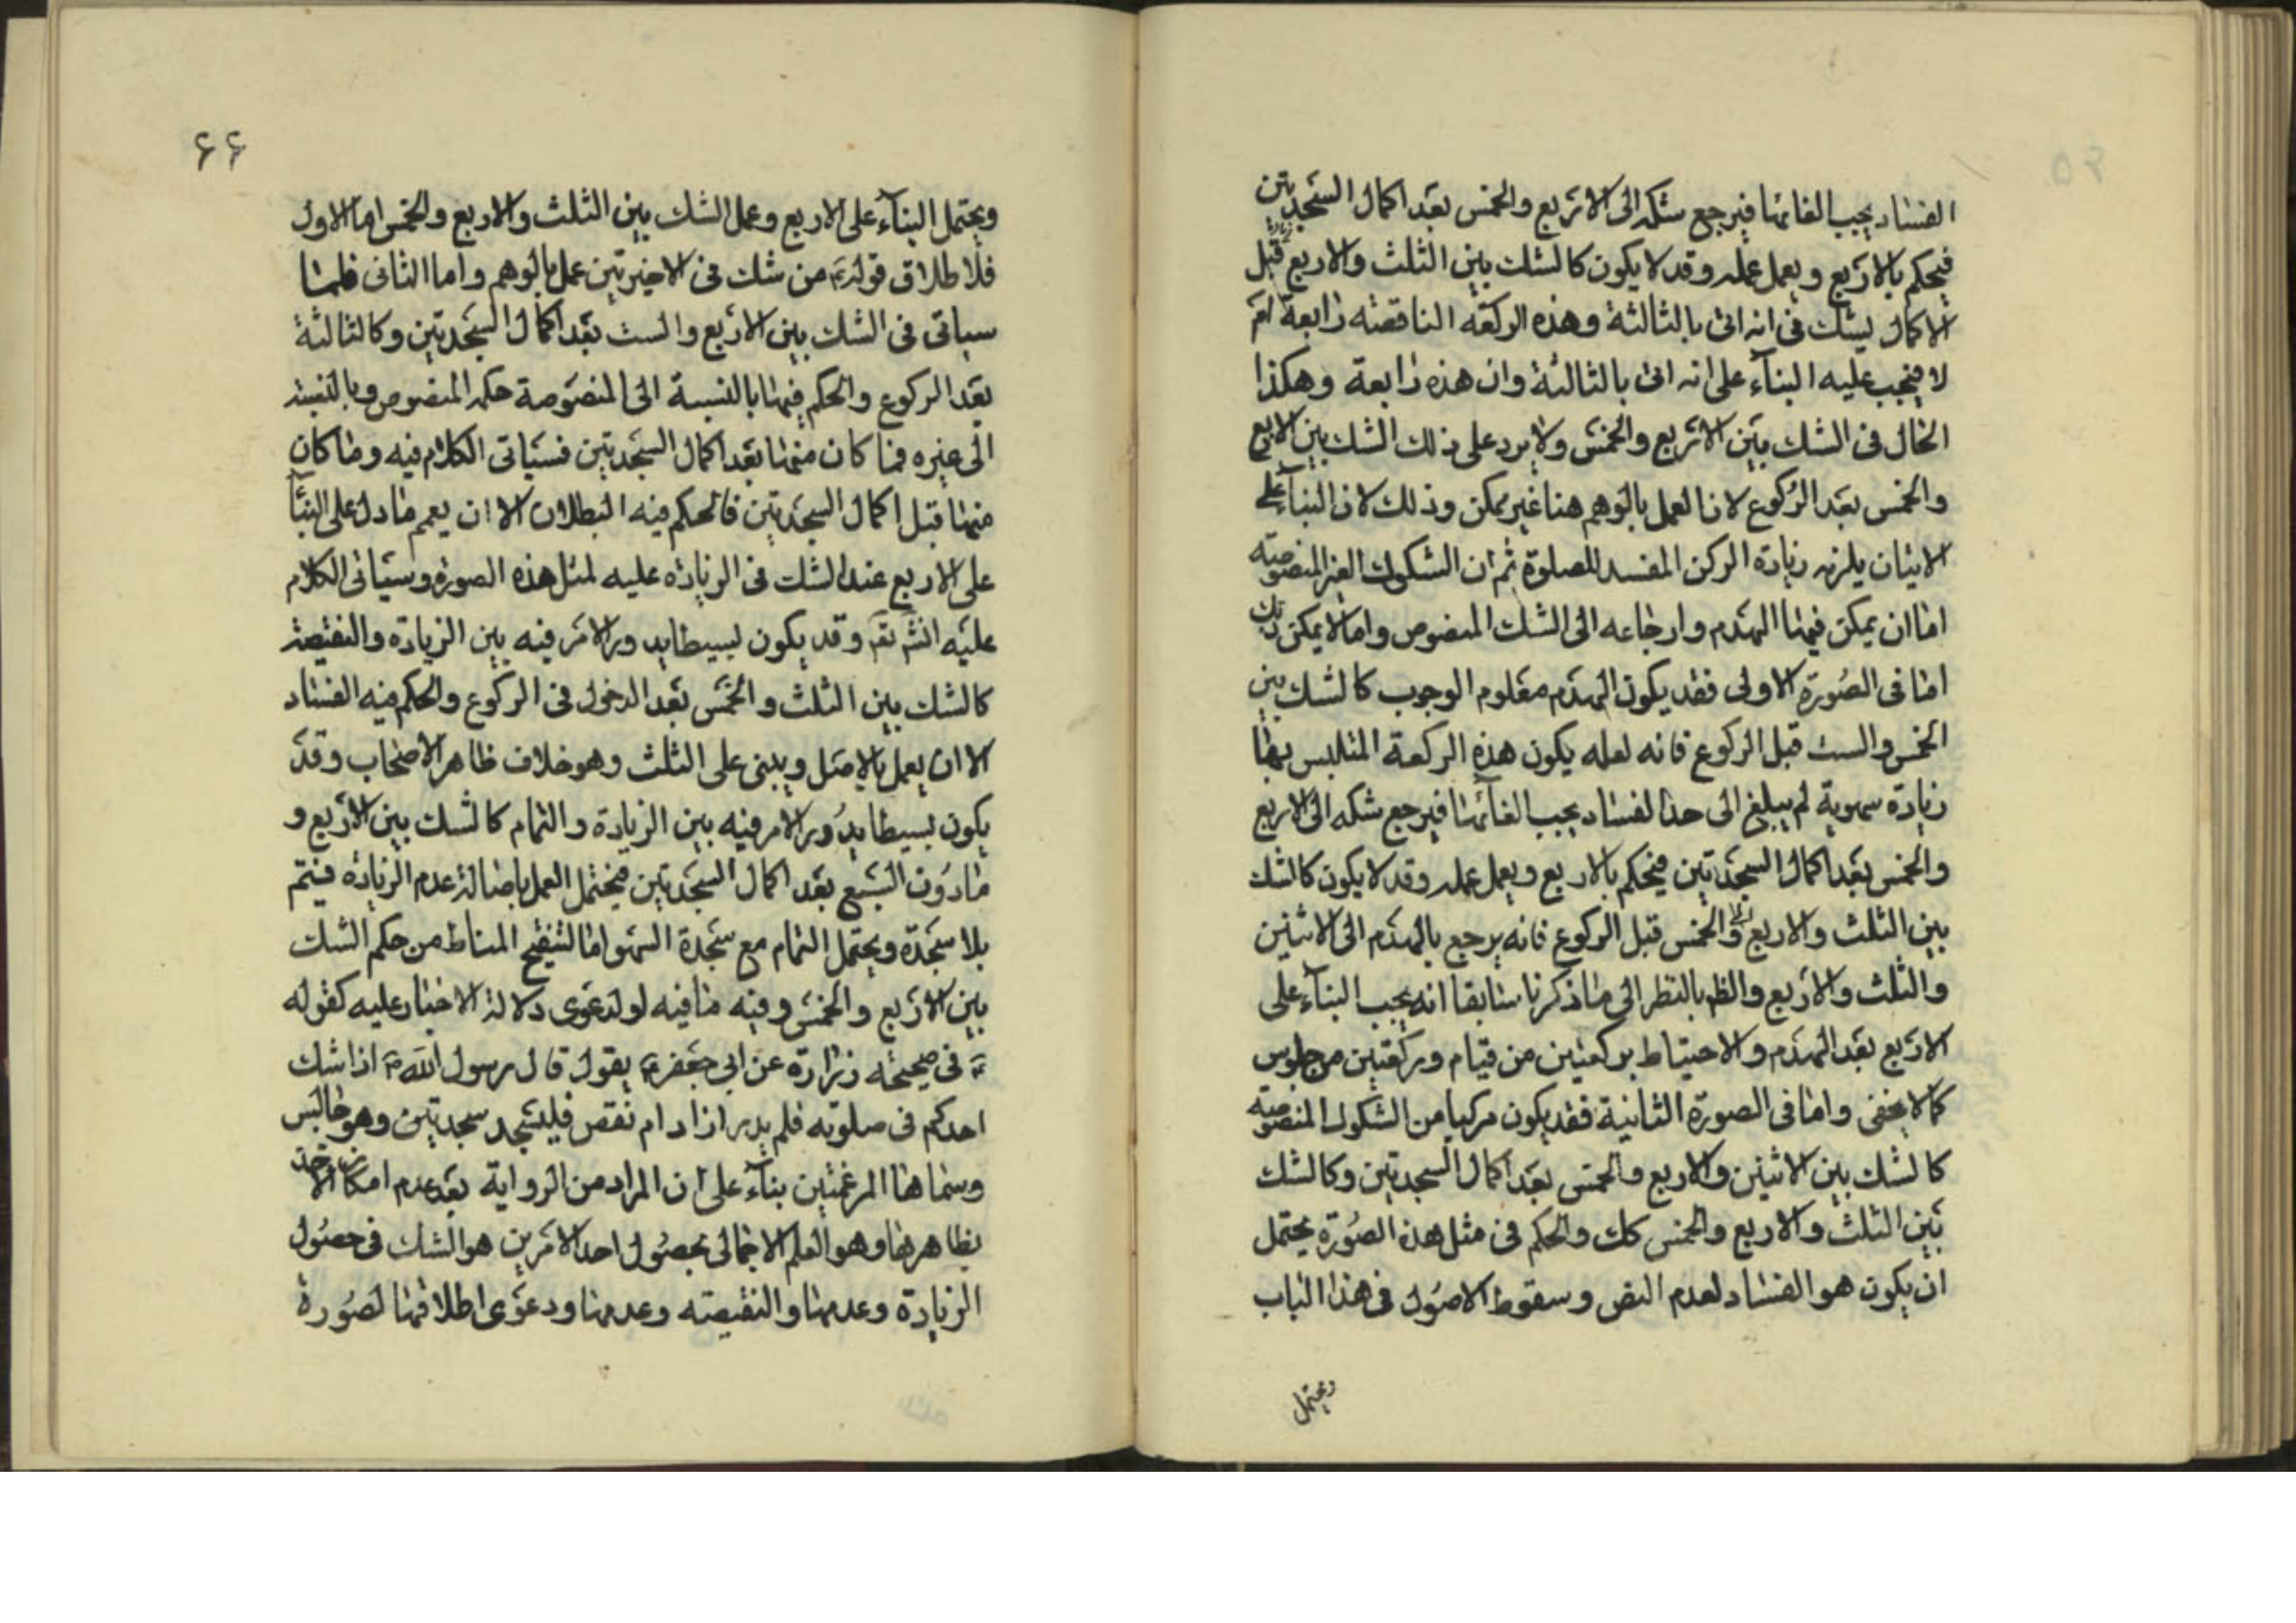 الفساد يجب الغائها فيرجع شكه الى الاربع والخمس بعد اكمال السجدتين
فيحكم بالاربع ويعمل عمله وقد لا يكون كالشك بين الثلث والاربع قبل
الاكمال يشك في انه اتى بالثالثة وهذه الركعة الناقصة رابعة ام
لا فيجب عليه البناء على انه اتى بالثالثة وان هذه رابعة وهكذا
الحال في الشك بين الاربع والخمس ولا يرد على ذلك الشك بين الاربع
والخمس بعد الركوع لان العمل بالوهم هنا غير ممكن وذلك لان البناء على
الاتيان يلزمه زيادة الركن المفسد للصلوة ثم ان الشكوك الغير المنصوصة
اما ان يمكن فيها الهدم وارجاعه الى الشك المنصوص واما لا يمكن ذلك
اما في الصورة الاولى فقد يكون الهدم معلوم الوجوب كالشك بين
الخمس والست قبل الركوع فانه لعله يكون هذه الركعة المتلبس بها
زيادة سهوية لم يبلغ الى حد الفساد يجب الغائها فيرجع شكه الى الاربع
والخمس بعد اكمال السجدتين فيحكم بالاربع ويعمل عمله وقد لا يكون كالشك
بين الثلث والاربع والخمس قبل الركوع فانه يرجع بالهدم الى الاثنين
والثلث والاربع والظ بالنظر الى ما ذكرنا سابقا انه يجب البناء على
الاربع بعد الهدم والاحتياط بركعتين من قيام وركعتين من جلوس
كما لا يخفى واما في الصورة الثانية فقد يكون مركبا من الشكوك المنصوصة
كالشك بين الاثنين والاربع والخمس بعد اكمال السجدتين وكالشك
بين الثلث والاربع والخمس كك والحكم في مثل هذه الصورة يحتمل
ان يكون هو الفساد لعدم النص وسقوط الاصول في هذا الباب
ويحتمل
۶۶
ويحتمل البناء على الاربع وعمل الشك بين الثلث والاربع والخمس اما الاول
فلاطلاق قوله ع من شك في الاخيرتين عمل بالوهم واما الثاني فلما
سياتى في الشك بين الاربع والست بعد اكمال السجدتين وكالثالثة
بعد الركوع والحكم فيها بالنسبة الى المنصوصة حكم المنصوص وبالنسبة
الى غيره فما كان منها بعد اكمال السجدتين فسياتى الكلام فيه وما كان
منها قبل اكمال السجدتين فالحكم فيه البطلان الا ان يعم ما دل على البناء
على الاربع عند الشك في الزيادة عليه لمثل هذه الصورة وسياتى الكلام
عليه انش تع وقد يكون بسيطا يدور الامر فيه بين الزيادة والنقيصة
كالشك بين الثلث والخمس بعد الدخول في الركوع والحكم فيه الفساد
الا ان يعمل بالاصل ويبنى على الثلث وهو خلاف ظاهر الاصحاب وقد
يكون بسيطا يدور الامر فيه بين الزيادة والتمام كالشك بين الاربع و
ما دون السبع بعد اكمال السجدتين فيحتمل العمل باصالة عدم الزيادة فيتم
بلا سجدة ويحتمل التمام مع سجدة السهو اما لتنقيح المناط من حكم الشك
بين الاربع والخمس وفيه ما فيه او لدعوى دلالة الاخبار عليه كقوله
ع في صحيحه زرارة عن ابي جعفر ع يقول قال رسول الله ص اذا شك
احدكم في صلوته فلم يدر ازاد ام نقص فليسجد سجدتين وهو جالس
وسماها المرغمتين بناء على ان المراد من الرواية بعد عدم امكان الاخذ
بظاهرها وهو العلم الاجمالي بحصول احد الامرين هو الشك في حصول
الزيادة وعدمها والنقيصة وعدمها ودعوى اطلاقها لصورة